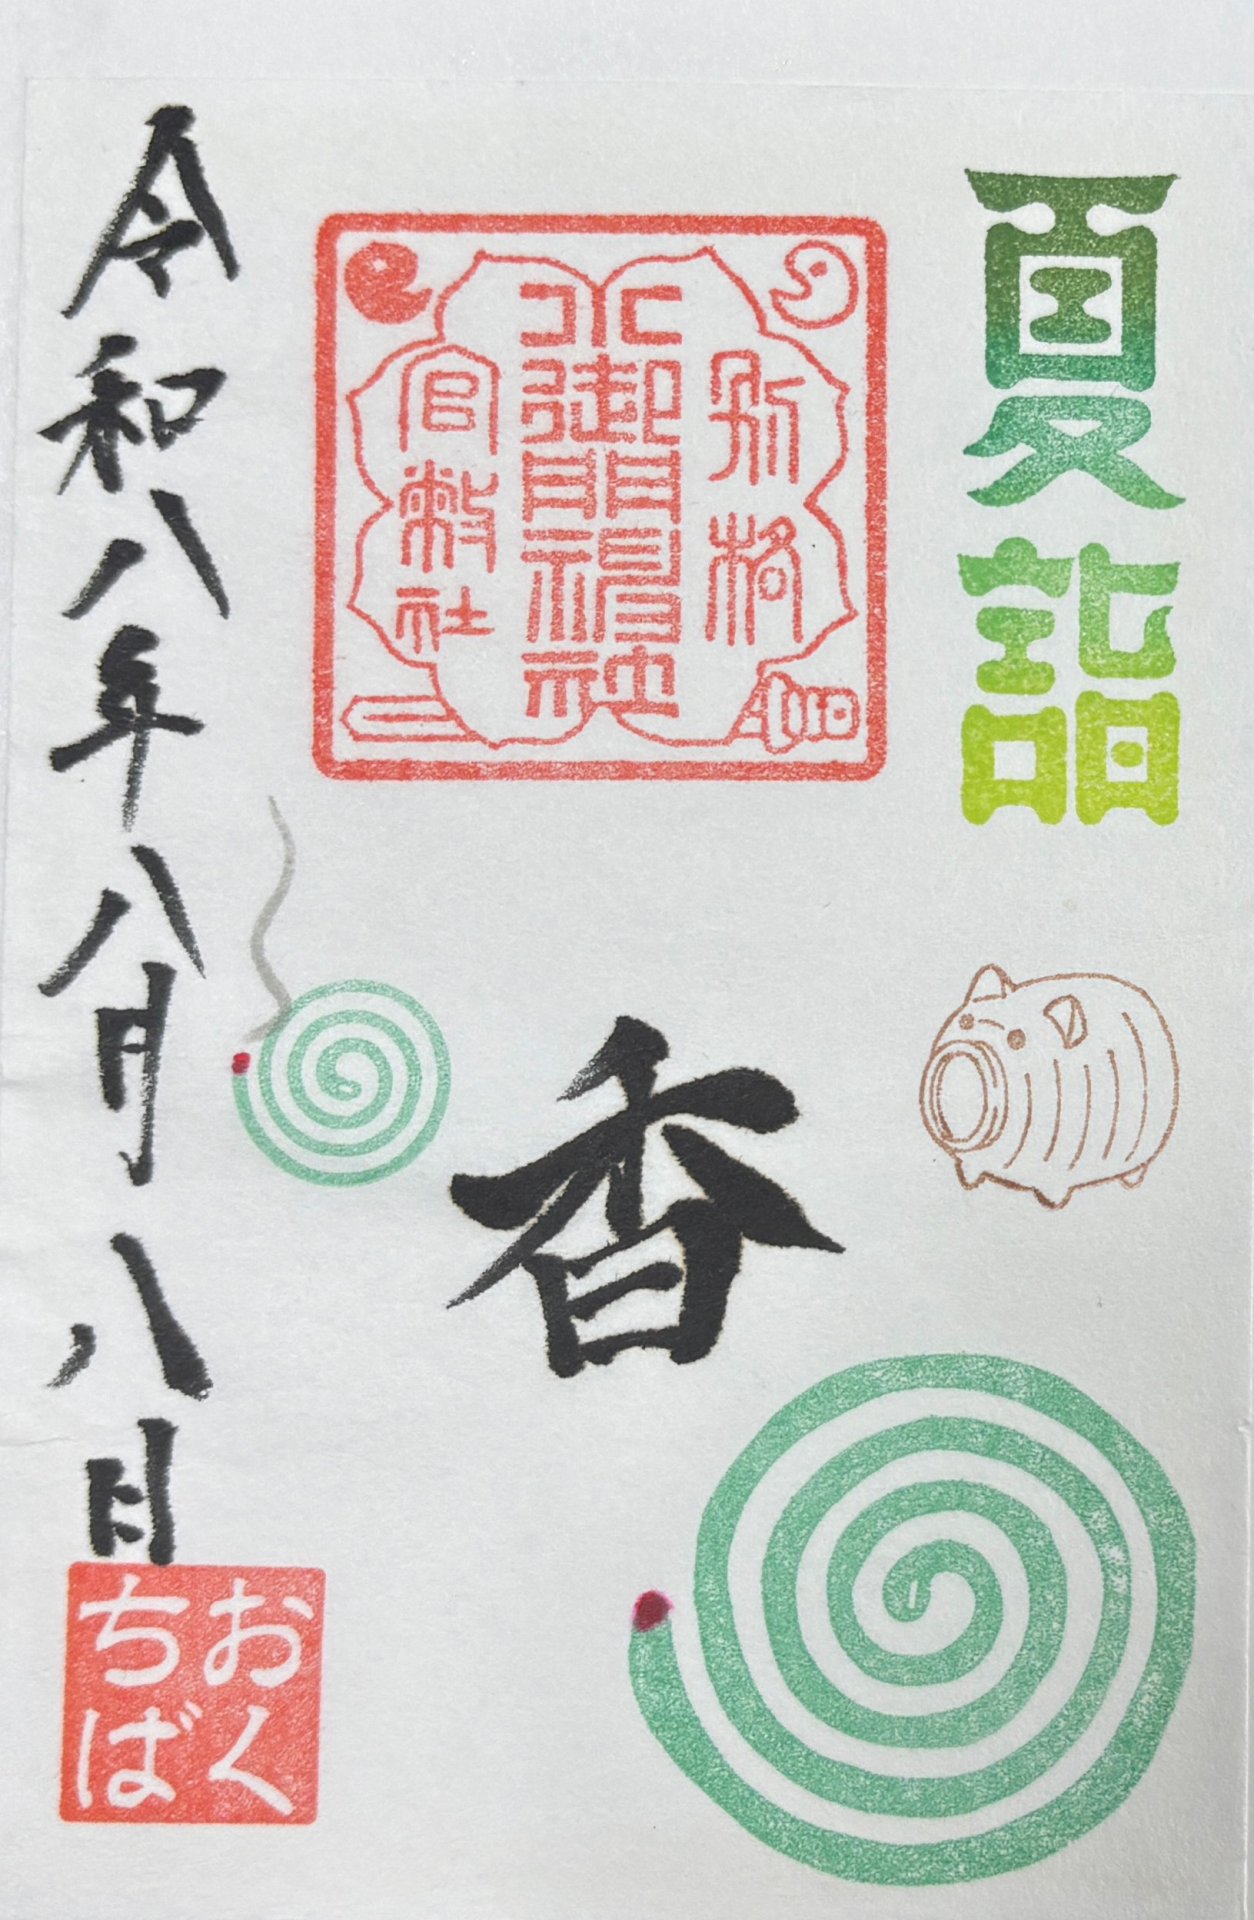 夏詣
別格
小御門神社
官幣社
香
令和八年八月八日
おく
ちば